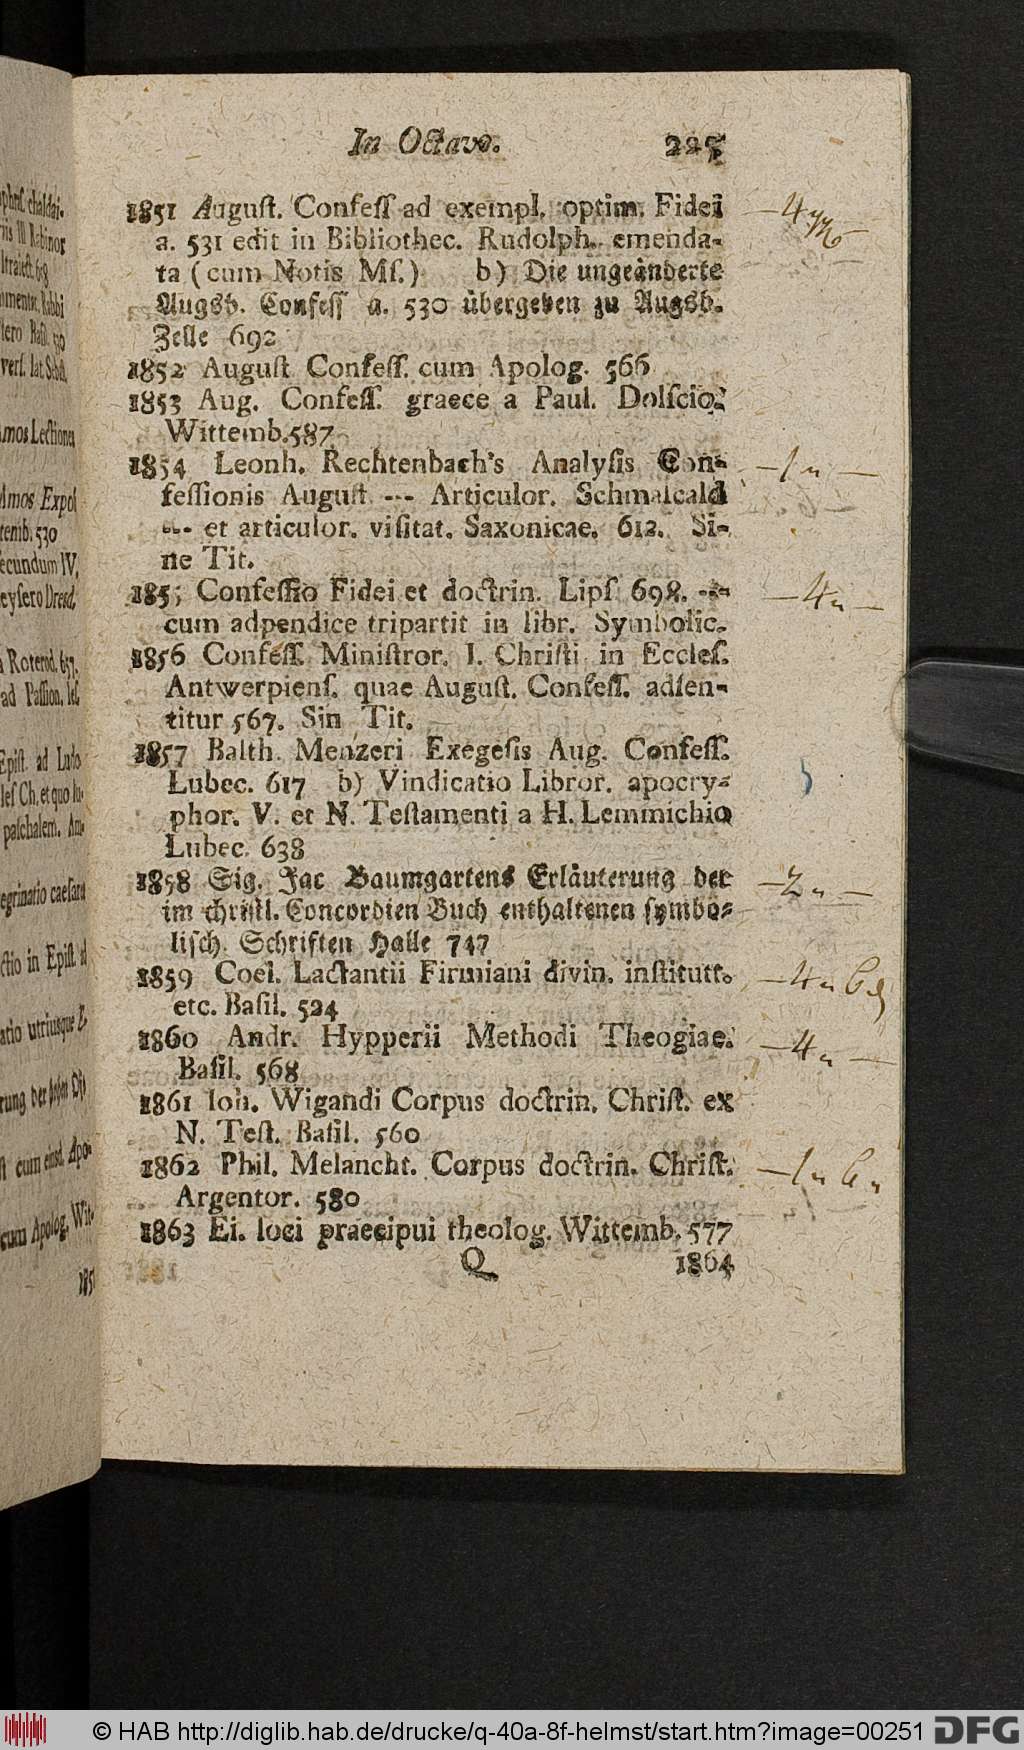 In Octavo. 225
1851 August. Confeſſ ad exempl. optim. Fidei
a. 531 edit in Bibliothec. Rudolph. emenda-
ta (cum Notis Mſ.) b) Die ungeänderte
Augsb. Confeſſ a. 530 übergeben zu Augsb.
Zelle 692
1852 Auguſt Confeſſ. cum Apolog. 566
1853 Aug. Confeſſ. graece a Paul. Dolſcio.
Wittemb. 587
1854 Leonh. Rechtenbach's Analyſis Con-
feſſionis Auguſt --- Articulor. Schmalcald
--- et articulor. viſitat. Saxonicae. 612. Si-
ne Tit.
1855 Confeſſio Fidei et doctrin. Lipſ 698. ---
cum adpendice tripartit in libr. Symbolic.
1856 Confeſſ. Miniſtror. J. Chriſti in Eccleſ.
Antwerpienſ. quae Auguſt. Confeſſ. adſen-
titur 567. Sin Tit.
1857 Balth. Menzeri Exegeſis Aug. Confeſſ.
Lubec. 617 b) Vindicatio Libror. apocry-
phor. V. et N. Teſtamenti a H. Lemmichio
Lubec. 638
1858 Sig. Jac Baumgartens Erläuterung der
im chriſtl. Concordien Buch enthaltenen ſymbo-
liſch. Schriften Halle 747
1859 Coel. Lactantii Firmiani divin. inſtitutt.
etc. Baſil. 524
1860 Andr. Hypperii Methodi Theogiae.
Baſil. 568
1861 Ioh. Wigandi Corpus doctrin. Chriſt. ex
N. Teſt. Baſil. 560
1862 Phil. Melancht. Corpus doctrin. Chriſt.
Argentor. 580
1863 Ei. loci praecipui theolog. Wittemb. 577
Q 1864
© HAB http://diglib.hab.de/drucke/q-40a-8f-helmst/start.htm?image=00251 DFG